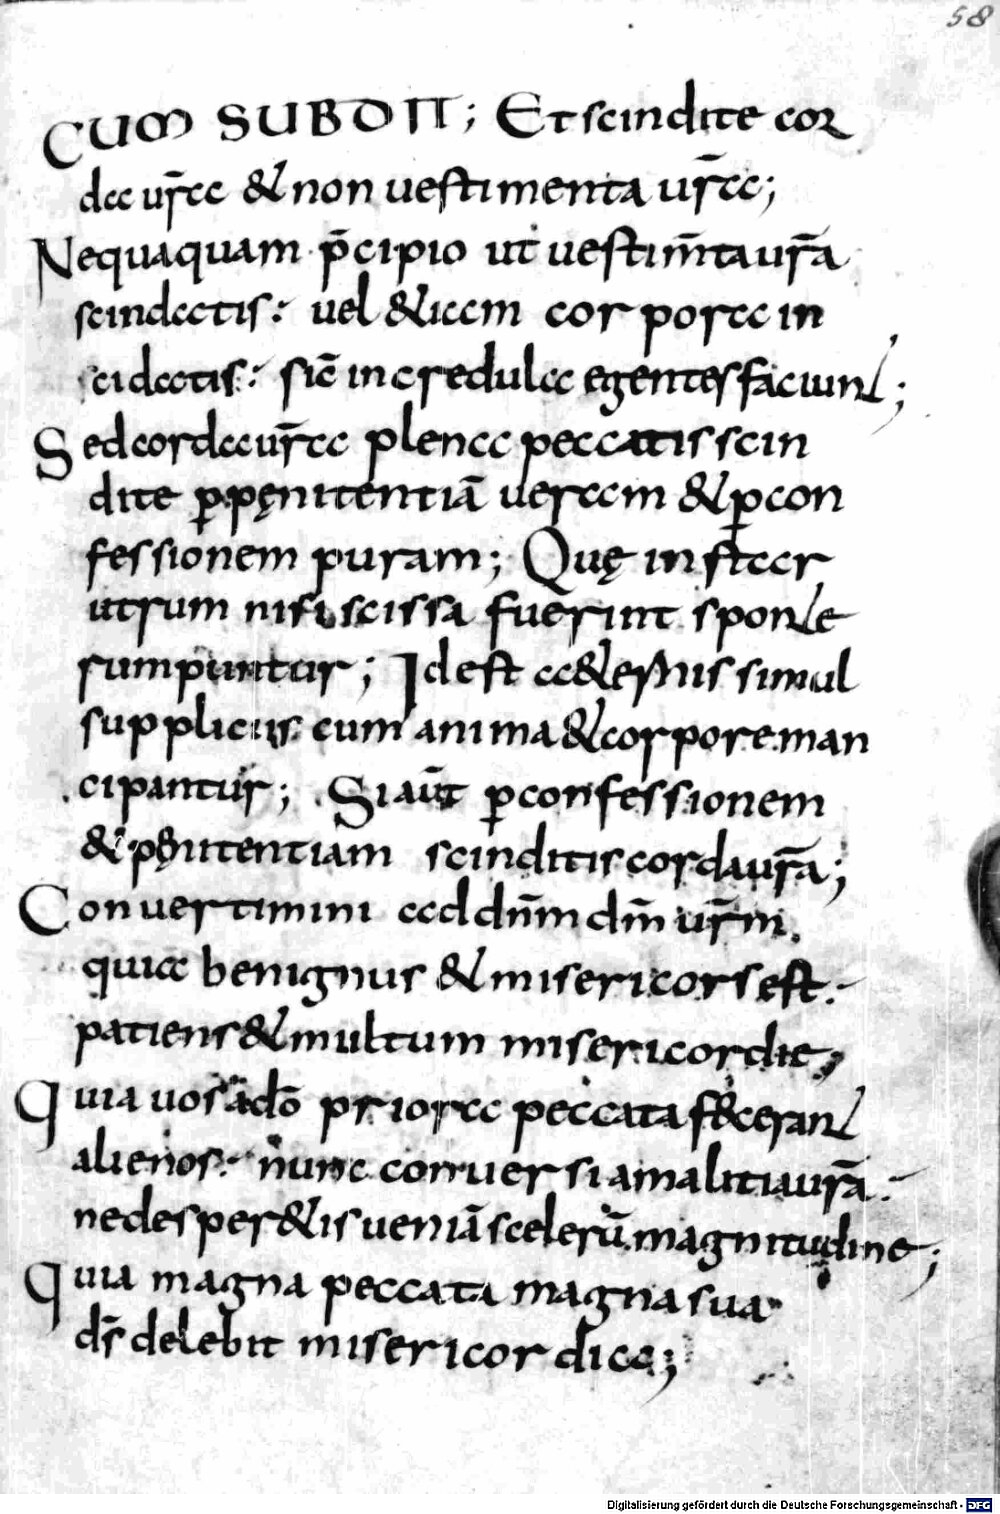 58
CUM SUBDIT; Et scindite cor
da ur̄a & non uestimenta ur̄a;
Nequaquam p̄cipio ut uestim̄ta ur̄a
scindatis: uel &iam corpora in
cidatis: sic̄ increduli egentes faciunt;
Sed corda ur̄a plena peccatis scin
dite p̱ pęnitentiā ueram & p̱ con
fessionem puram; Quę instar
utrum nisi scissa fuerint sponte
rumpuntur; Idest a&ernis simul
suppliciis cum anima & corpore man
cipantur; Si aūt p̱ confessionem
& pęnitentiam scinditis corda ur̄a;
Conuertimini ad dn̄m dm̄ ur̄m.
quia benignus & misericors est:
patiens & multum misericordie;
Quia uos a dō priora peccata fecerant
alienos: nunc conuersi a malitia ur̄a:
ne desper&is ueniā scelerū magnitudine;
Quia magna peccata magna sua
ds̄ delebit misericordia;
Digitalisierung gefördert durch die Deutsche Forschungsgemeinschaft - DFG